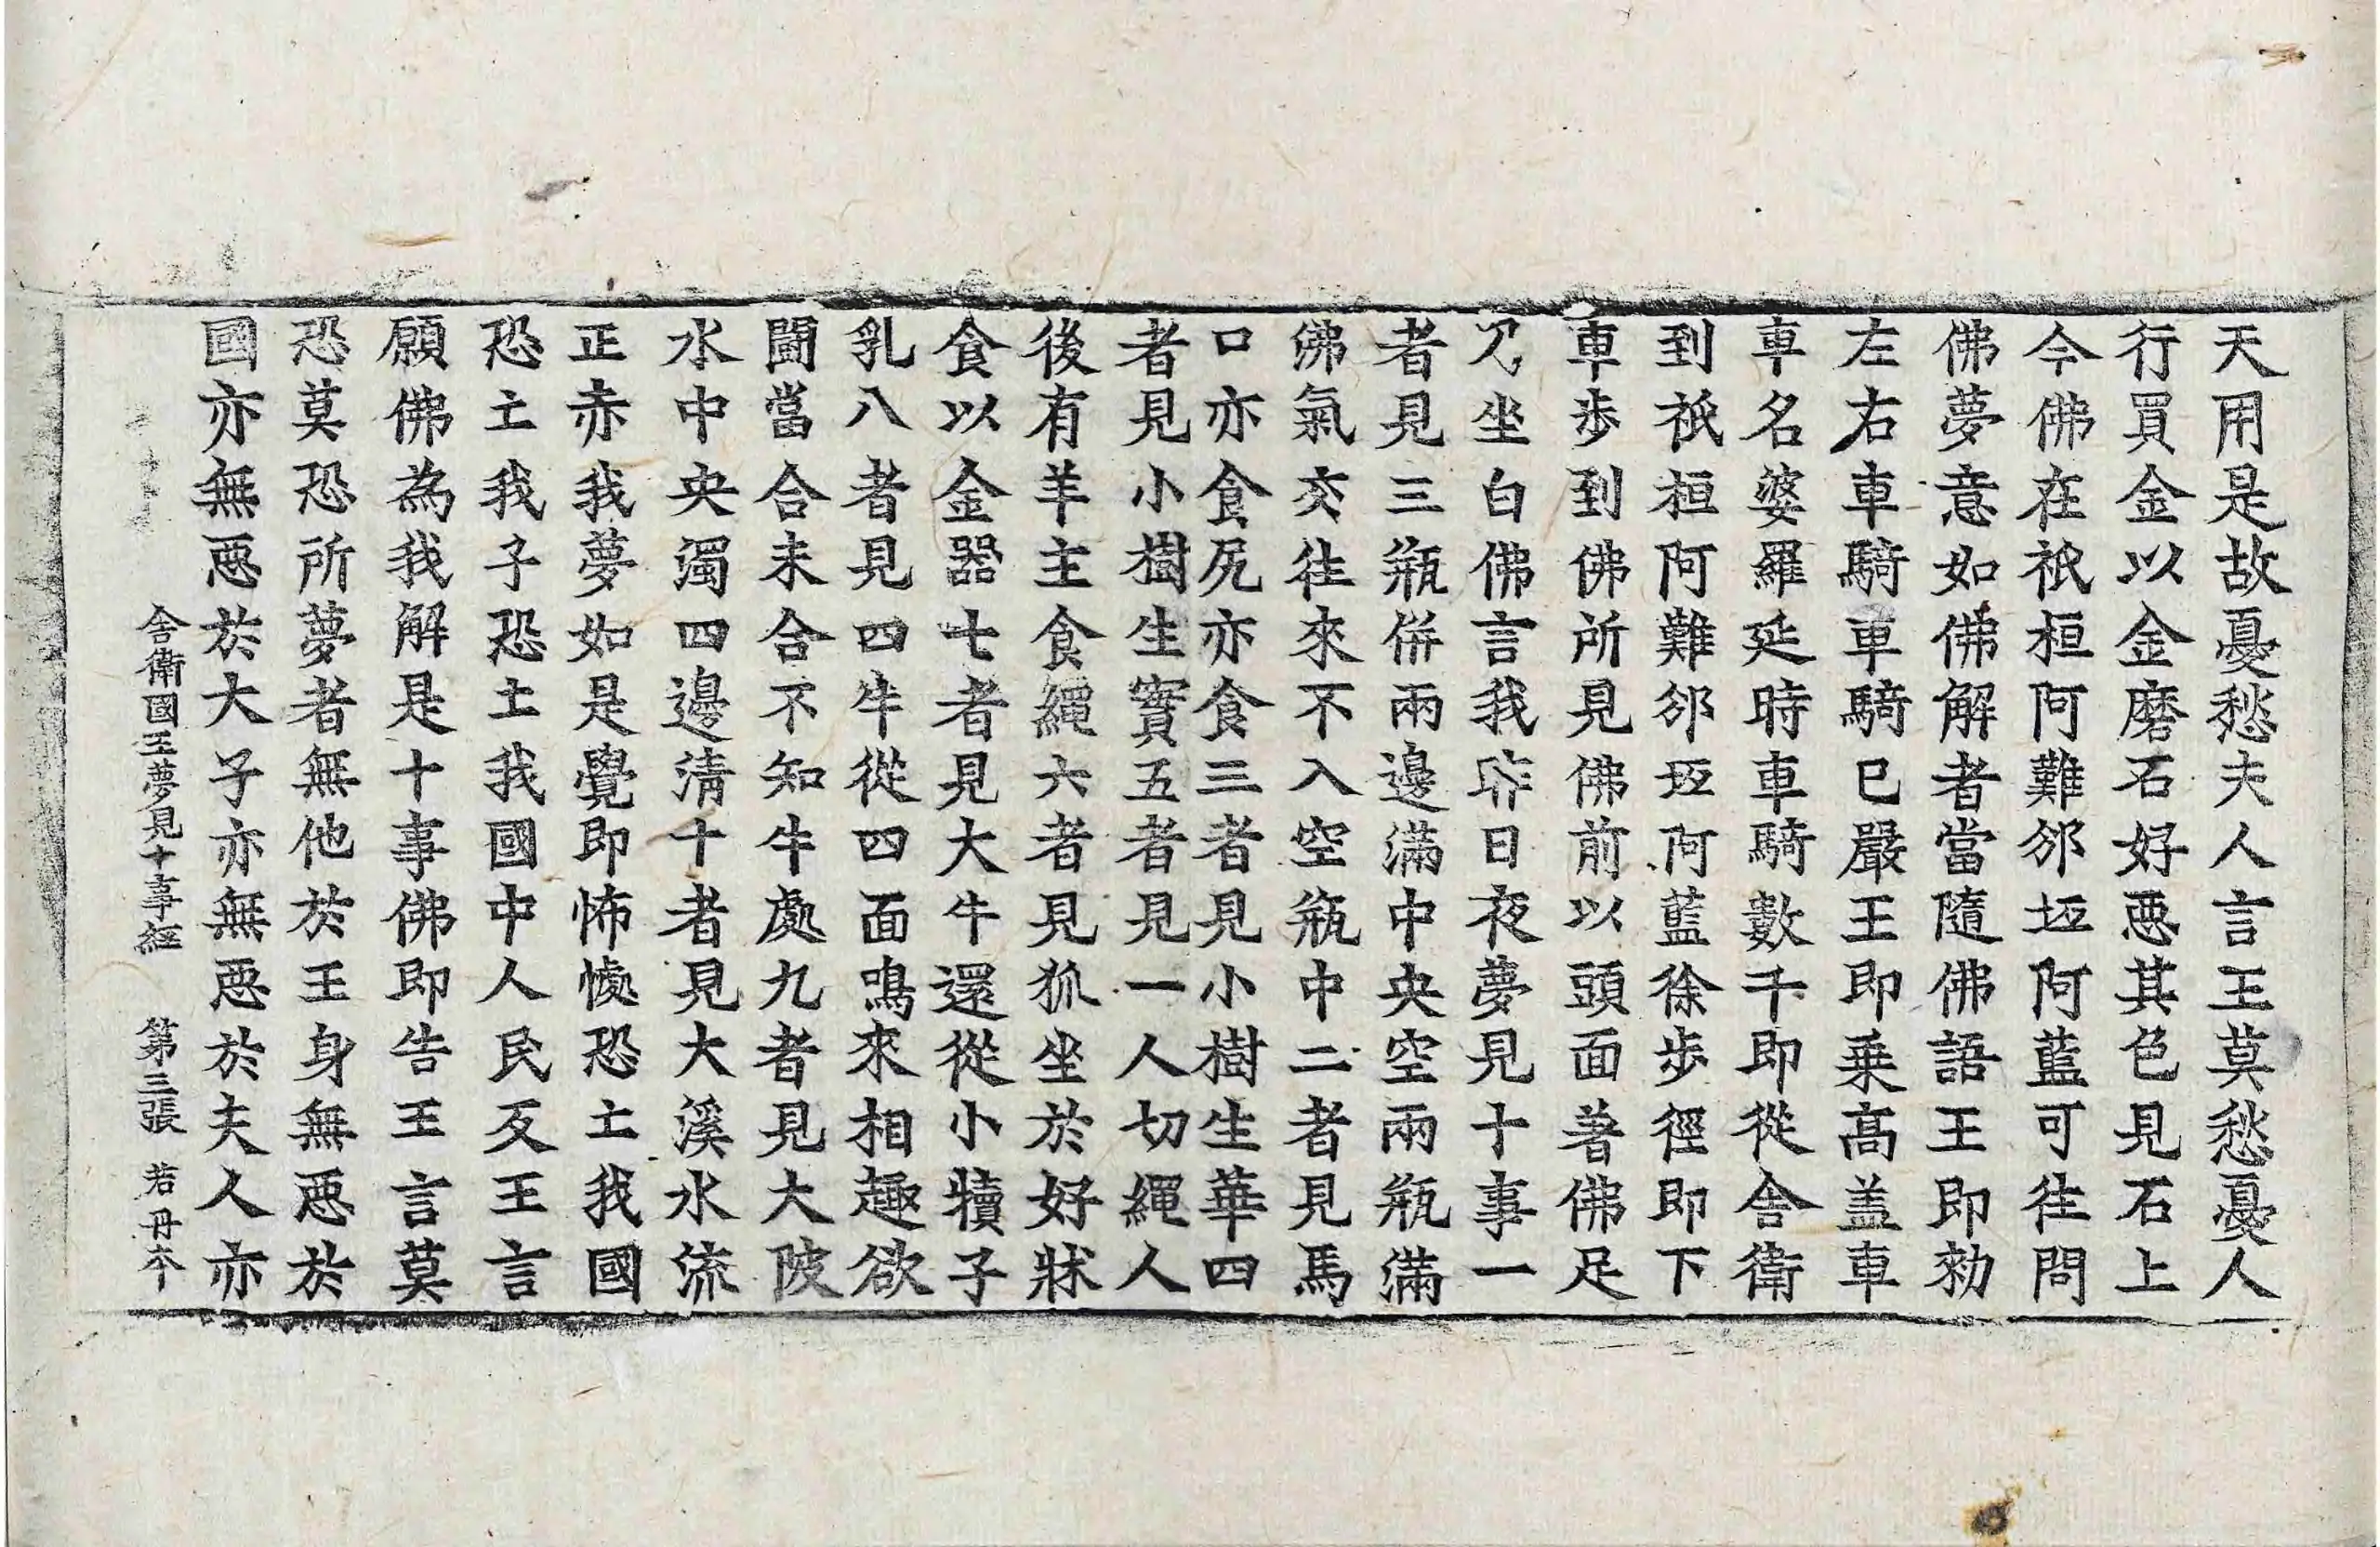 天用是故憂愁夫人言王莫愁憂人
行買金以金磨石好惡其色見石上
今佛在祇桓阿難邠坻阿藍可往問
佛夢意如佛解者當隨佛語王即勑
左右車騎車騎已嚴王即乗髙盖車
車名婆羅延時車騎數千即從舍衛
到祇桓阿難邠坻阿藍徐步徑即下
車步到佛所見佛前以頭面著佛足
坐白佛言我昨日夜夢見十事一
者見三瓶併兩邊滿中央空兩瓶滿
沸氣交往來不入空瓶中二者見馬
口亦食尻亦食三者見小樹生華四
者見小樹生實五者見一人切繩人
後有羊主食繩六者見狐坐於好牀
食以金器七者見大牛還從小犢子
乳八者見四牛從四面鳴來相趣欲
鬪當合未合不知牛處九者見大陂
水中央濁四邊清十者見大溪水流
正赤我夢如是覺即怖懅恐亡我國
恐亡我子恐亡我國中人民及王言
願佛為我解是十事佛即告王言莫
恐莫恐所夢者無他於王身無惡於
國亦無惡於大子亦無惡於夫人亦
舍衛國王夢見十事經 第三張 若 丹本